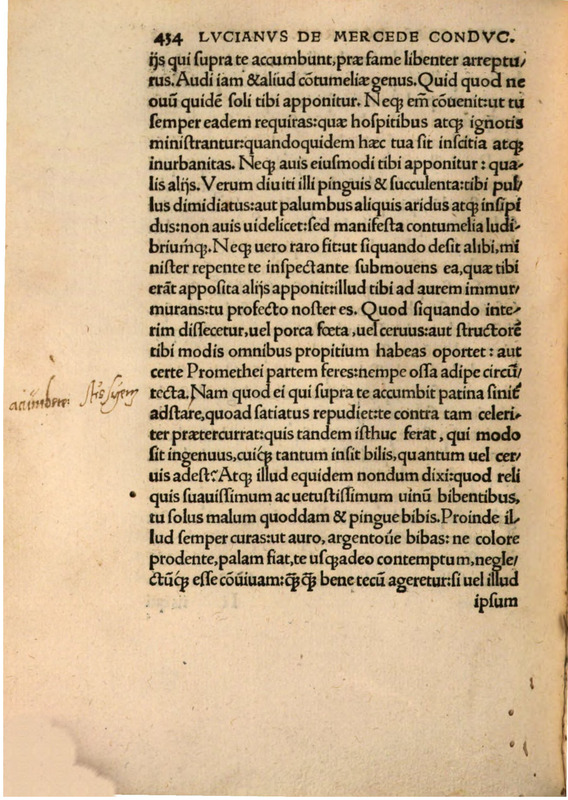 454 LVCIANVS DE MERCEDE CONDVC.
ijs qui supra te accumbunt, præ fame libenter arreptu/
rus. Audi iam & aliud cõtumeliæ genus. Quid quod ne
ouũ quidẽ soli tibi apponitur. Neqꝫ em̃ cõuenit: ut tu
semper eadem requiras: quæ hospitibus atqꝫ ignotis
ministrantur: quandoquidem hæc tua sit inscitia atqꝫ
inurbanitas. Neqꝫ auis eiusmodi tibi apponitur: qua/
lis alijs. Verum diuiti illi pinguis & succulenta: tibi pul/
lus dimidiatus: aut palumbus aliquis aridus atqꝫ insipi
dus: non auis uidelicet: sed manifesta contumelia ludi/
briumqꝫ. Neqꝫ uero raro fit: ut siquando desit alibi, mi
nister repente te inspectante submouens ea, quæ tibi
erãt apposita alijs apponit: illud tibi ad aurem immur/
murans: tu profecto noster es. Quod siquando inte/
rim dissecetur, uel porca fœta, uel ceruus: aut structorẽ
tibi modis omnibus propitium habeas oportet: aut
certe Promethei partem feres: nempe ossa adipe circũ/
tecta. Nam quod ei qui supra te accumbit patina sinit̃
adstare, quoad satiatus repudiet: te contra tam celeri/
ter prætercurrat: quis tandem isthuc ferat, qui modo
sit ingenuus, cuiqꝫ tantum insit bilis, quantum uel cer/
uis adest? Atqꝫ illud equidem nondum dixi: quod reli
quis suauissimum ac uetustissimum uinũ bibentibus,
tu solus malum quoddam & pingue bibis. Proinde il/
lud semper curas: ut auro, argentoúe bibas: ne colore
prodente, palam fiat, te usqꝫ adeo contemptum, negle/
ctũqꝫ esse cõuiuam: qꝫ̃qꝫ̃ bene tecũ ageretur: si uel illud
ipsum